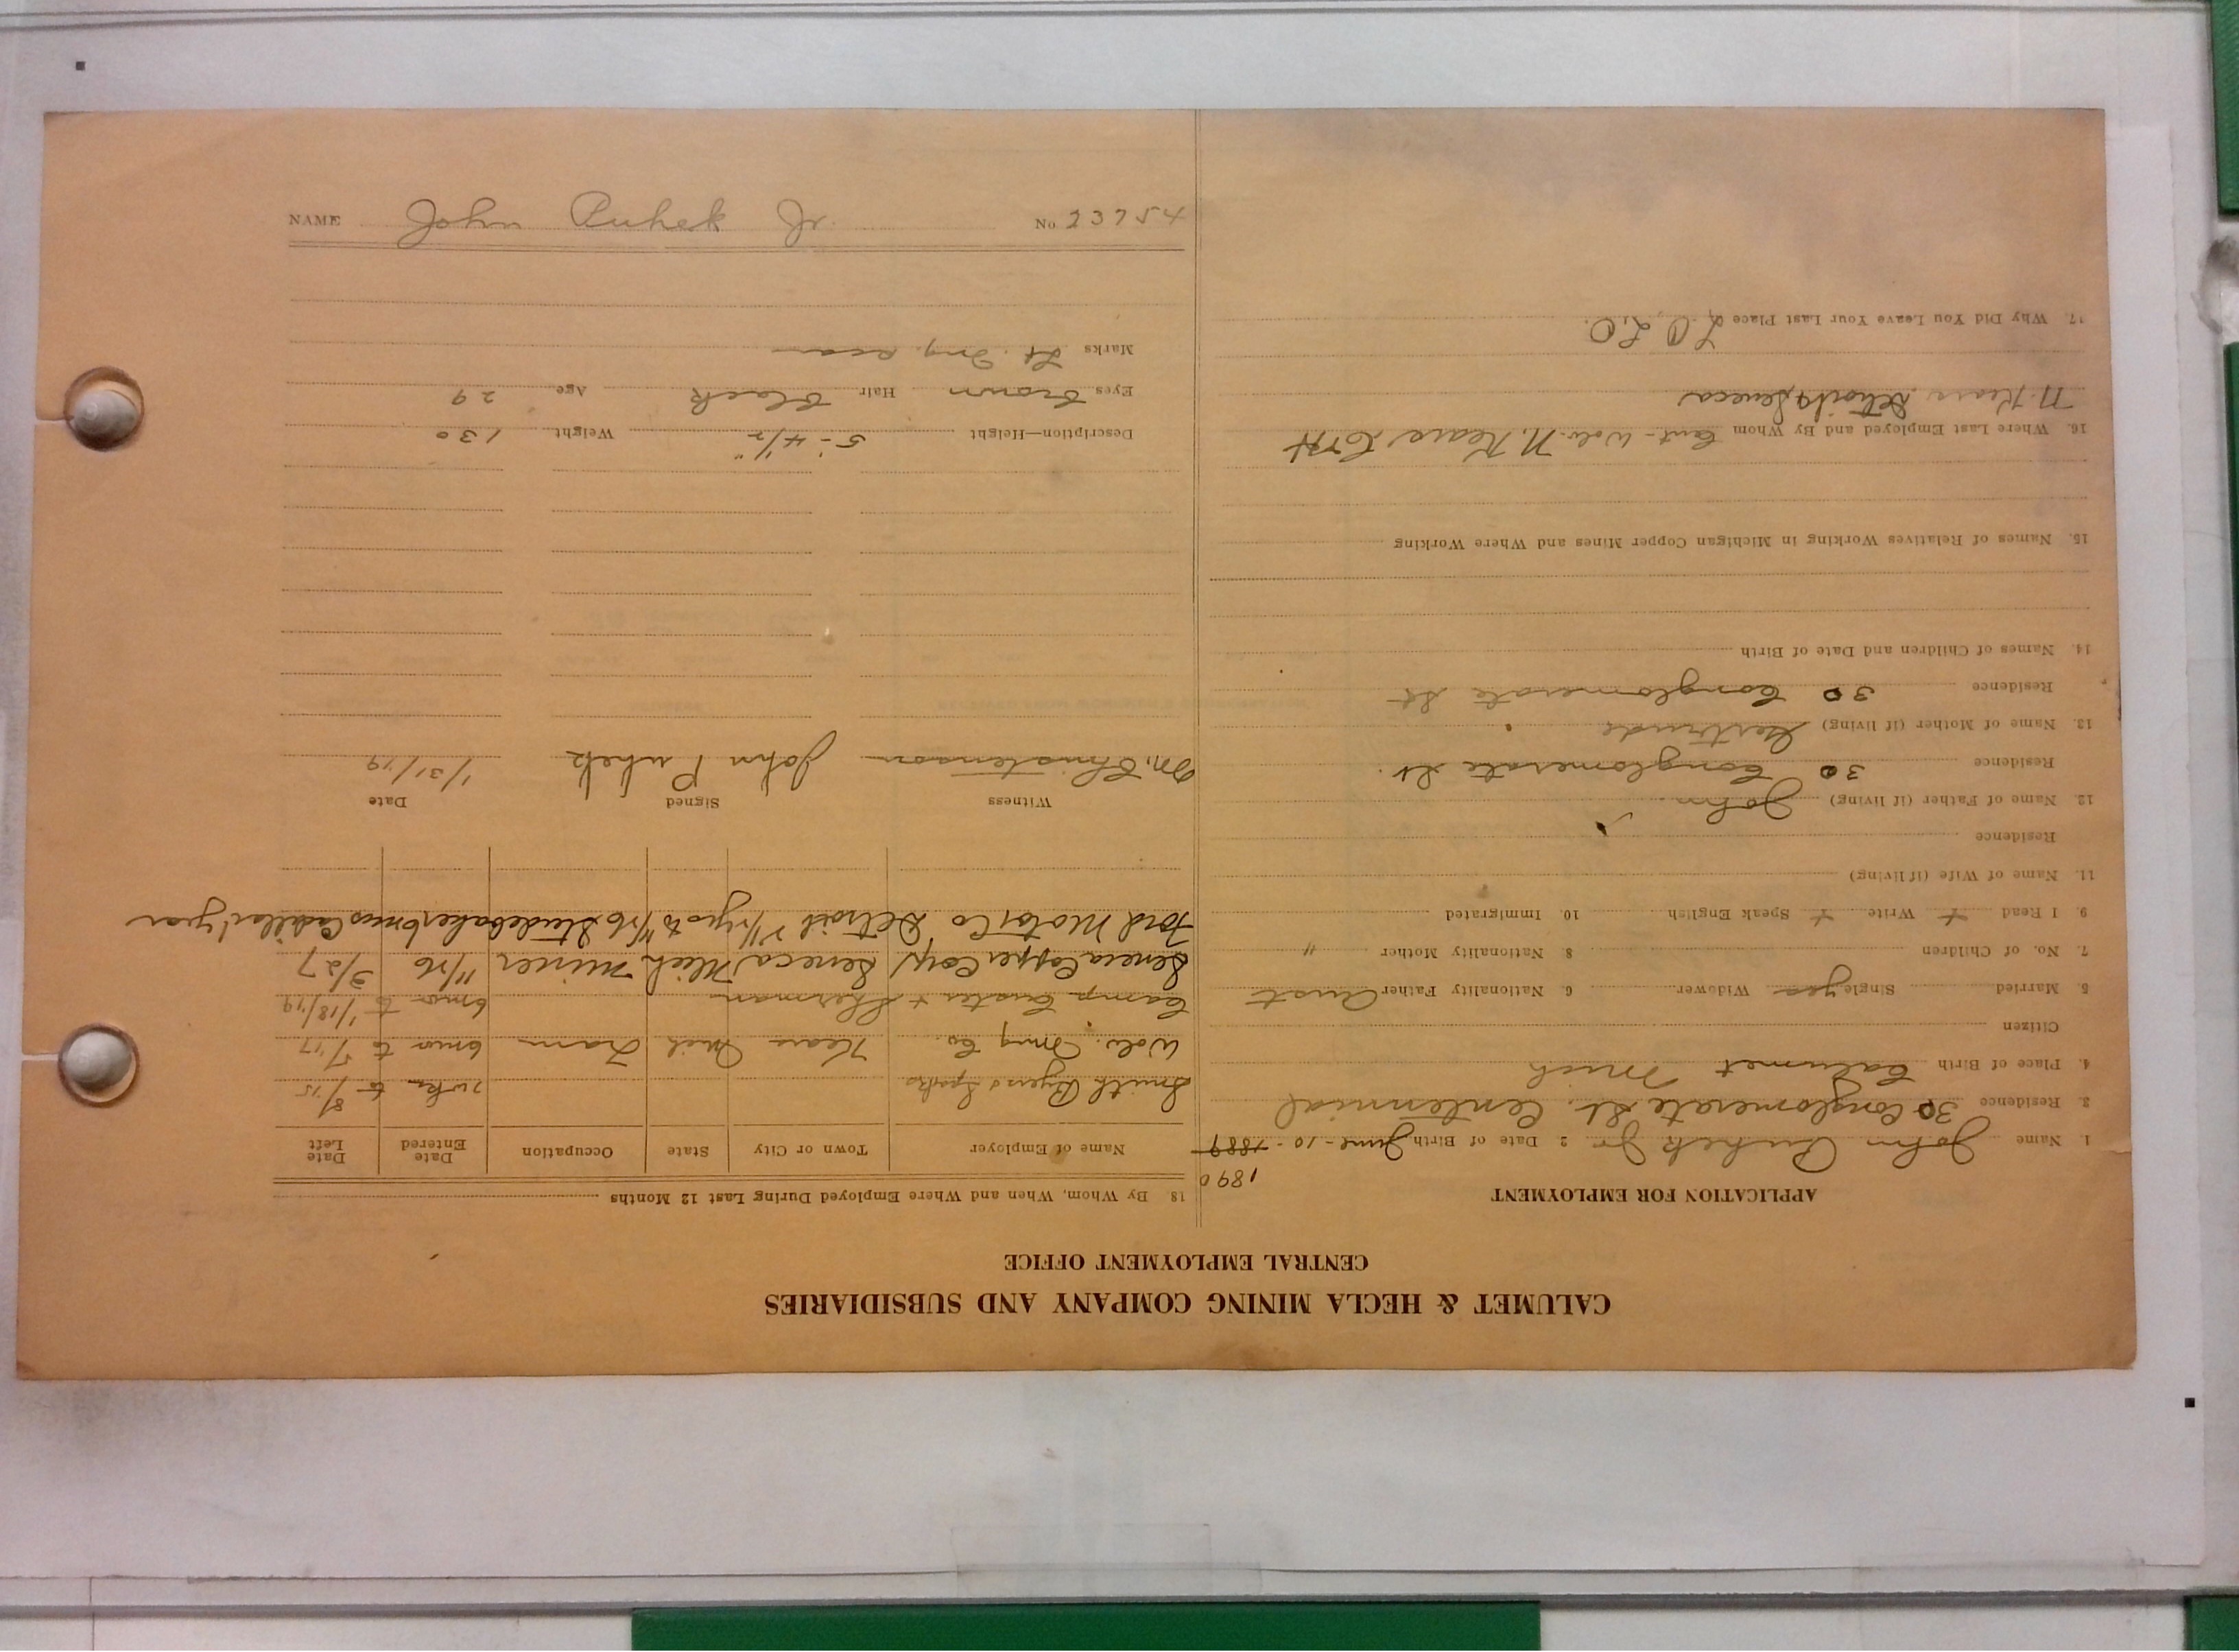 CALUMET & HECLA MINING COMPANY AND SUBSIDIARIES
CENTRAL EMPLOYMENT OFFICE
APPLICATION FOR EMPLOYMENT
1890
1. Name John Puhek Jr 2 Date of Birth June - 10 - 1889
3. Residence 30 Conglomerate St. Centennial
4. Place of Birth Calumet Mich
Citizen
5. Married Single yes Widower 6. Nationality Father Aust
7. No. of Children 8 Nationality Mother "
9. I Read + Write + Speak English 10. Immigrated
11. Name of Wife (if living)
Residence
12. Name of Father (if living) John
Residence 30 Conglomerate St.
13. Name of Mother (if living) Gertrude
Residence 30 Conglomerate St
14. Names of Children and Date of Birth
15. Names of Relatives Working in Michigan Copper Mines and Where Working
16. Where Last Employed and By Whom Cent- Wolv. N. Kears C&H
N. Kears. Detroit & Seneca
17. Why Did You Leave Your Last Place
18. By Whom, When and Where Employed During Last 12 Months
Name of Employer Town or City State Occupation Date Entered Date Left
Smith Byers Sparks 2 wks to 8/15
Wolv. Mng Co. Kears Mich Tram 6 mos to 7/17
Camp Custer + Sherman 6 mos to 1/18/19
Seneca Copper Corp Seneca Mich Miner 11/26 3/27
Ford Motor Co Detroit to 11/26 Studebaker 6 mos Cadillac 1 year
Witness Signed Date
M. Christenson John Puhek 1/31/19
Description—Height 5'-4 1/2" Weight 130
Eyes Brown Hair Black Age 29
Marks Lt. Ing. scar
NAME John Puhek Jr. No 23754